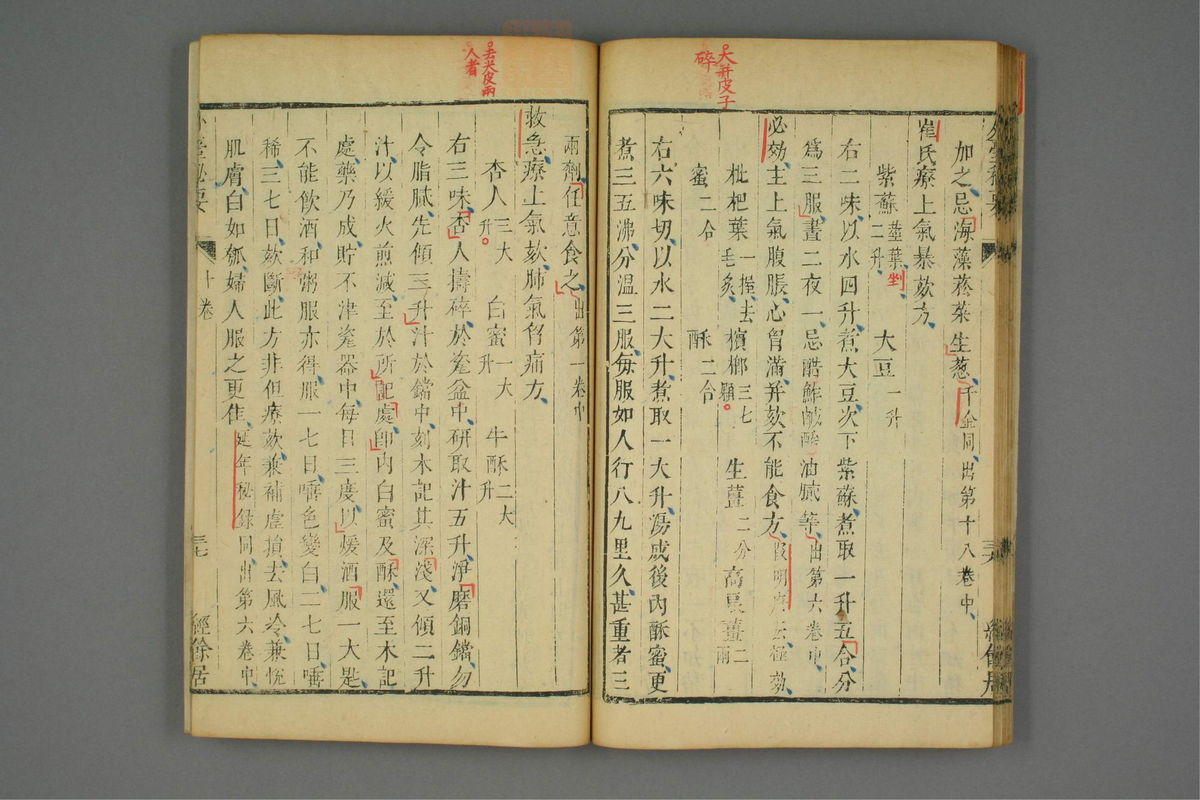 大弁皮子
碎
加之忌海藻菘菜生葱千金同出第十八卷中
崔氏療上氣暴欬方
紫蘇莖葉二升 大豆一升
右二味以水四升煮大豆次下紫蘇煮取一升五合分
爲三服晝二夜一忌酷鮓鹹酸油膩等出第六卷中
必効主上氣腹脹心胷滿并欬不能食方云極効
枇杷葉一握去毛炙 檳榔三七顆 生薑二分 高良薑二兩
蜜二合 酥二合
右六味切以水二大升煮取一大升湯成後內酥蜜更
煮三五沸分溫三服每服如人行八九里久甚重者三
三十六
經餘居
去尖皮兩
人者
兩劑任意食之出第一卷中
救急療上氣欬肺氣胷痛方
杏人三大升 白蜜一大升 牛酥二大升
右三味杏人擣碎於瓷盆中研取汁五升淨磨銅鐺勿
令脂膩先傾三升汁於鐺中刻木記其深淺又傾二升
汁以緩火煎減至於所記處即內白蜜及酥還至木記
處藥乃成貯不津瓷器中每日三度以煖酒服一大匙
不能飲酒和粥服亦得服一七日唾色變白二七日唾
稀三七日欬斷此方非但療欬兼補虛損去風冷兼悅
肌膚白如瓠婦人服之更佳延年秘錄同出第六卷中
外臺秘要
十卷
三七
經餘居